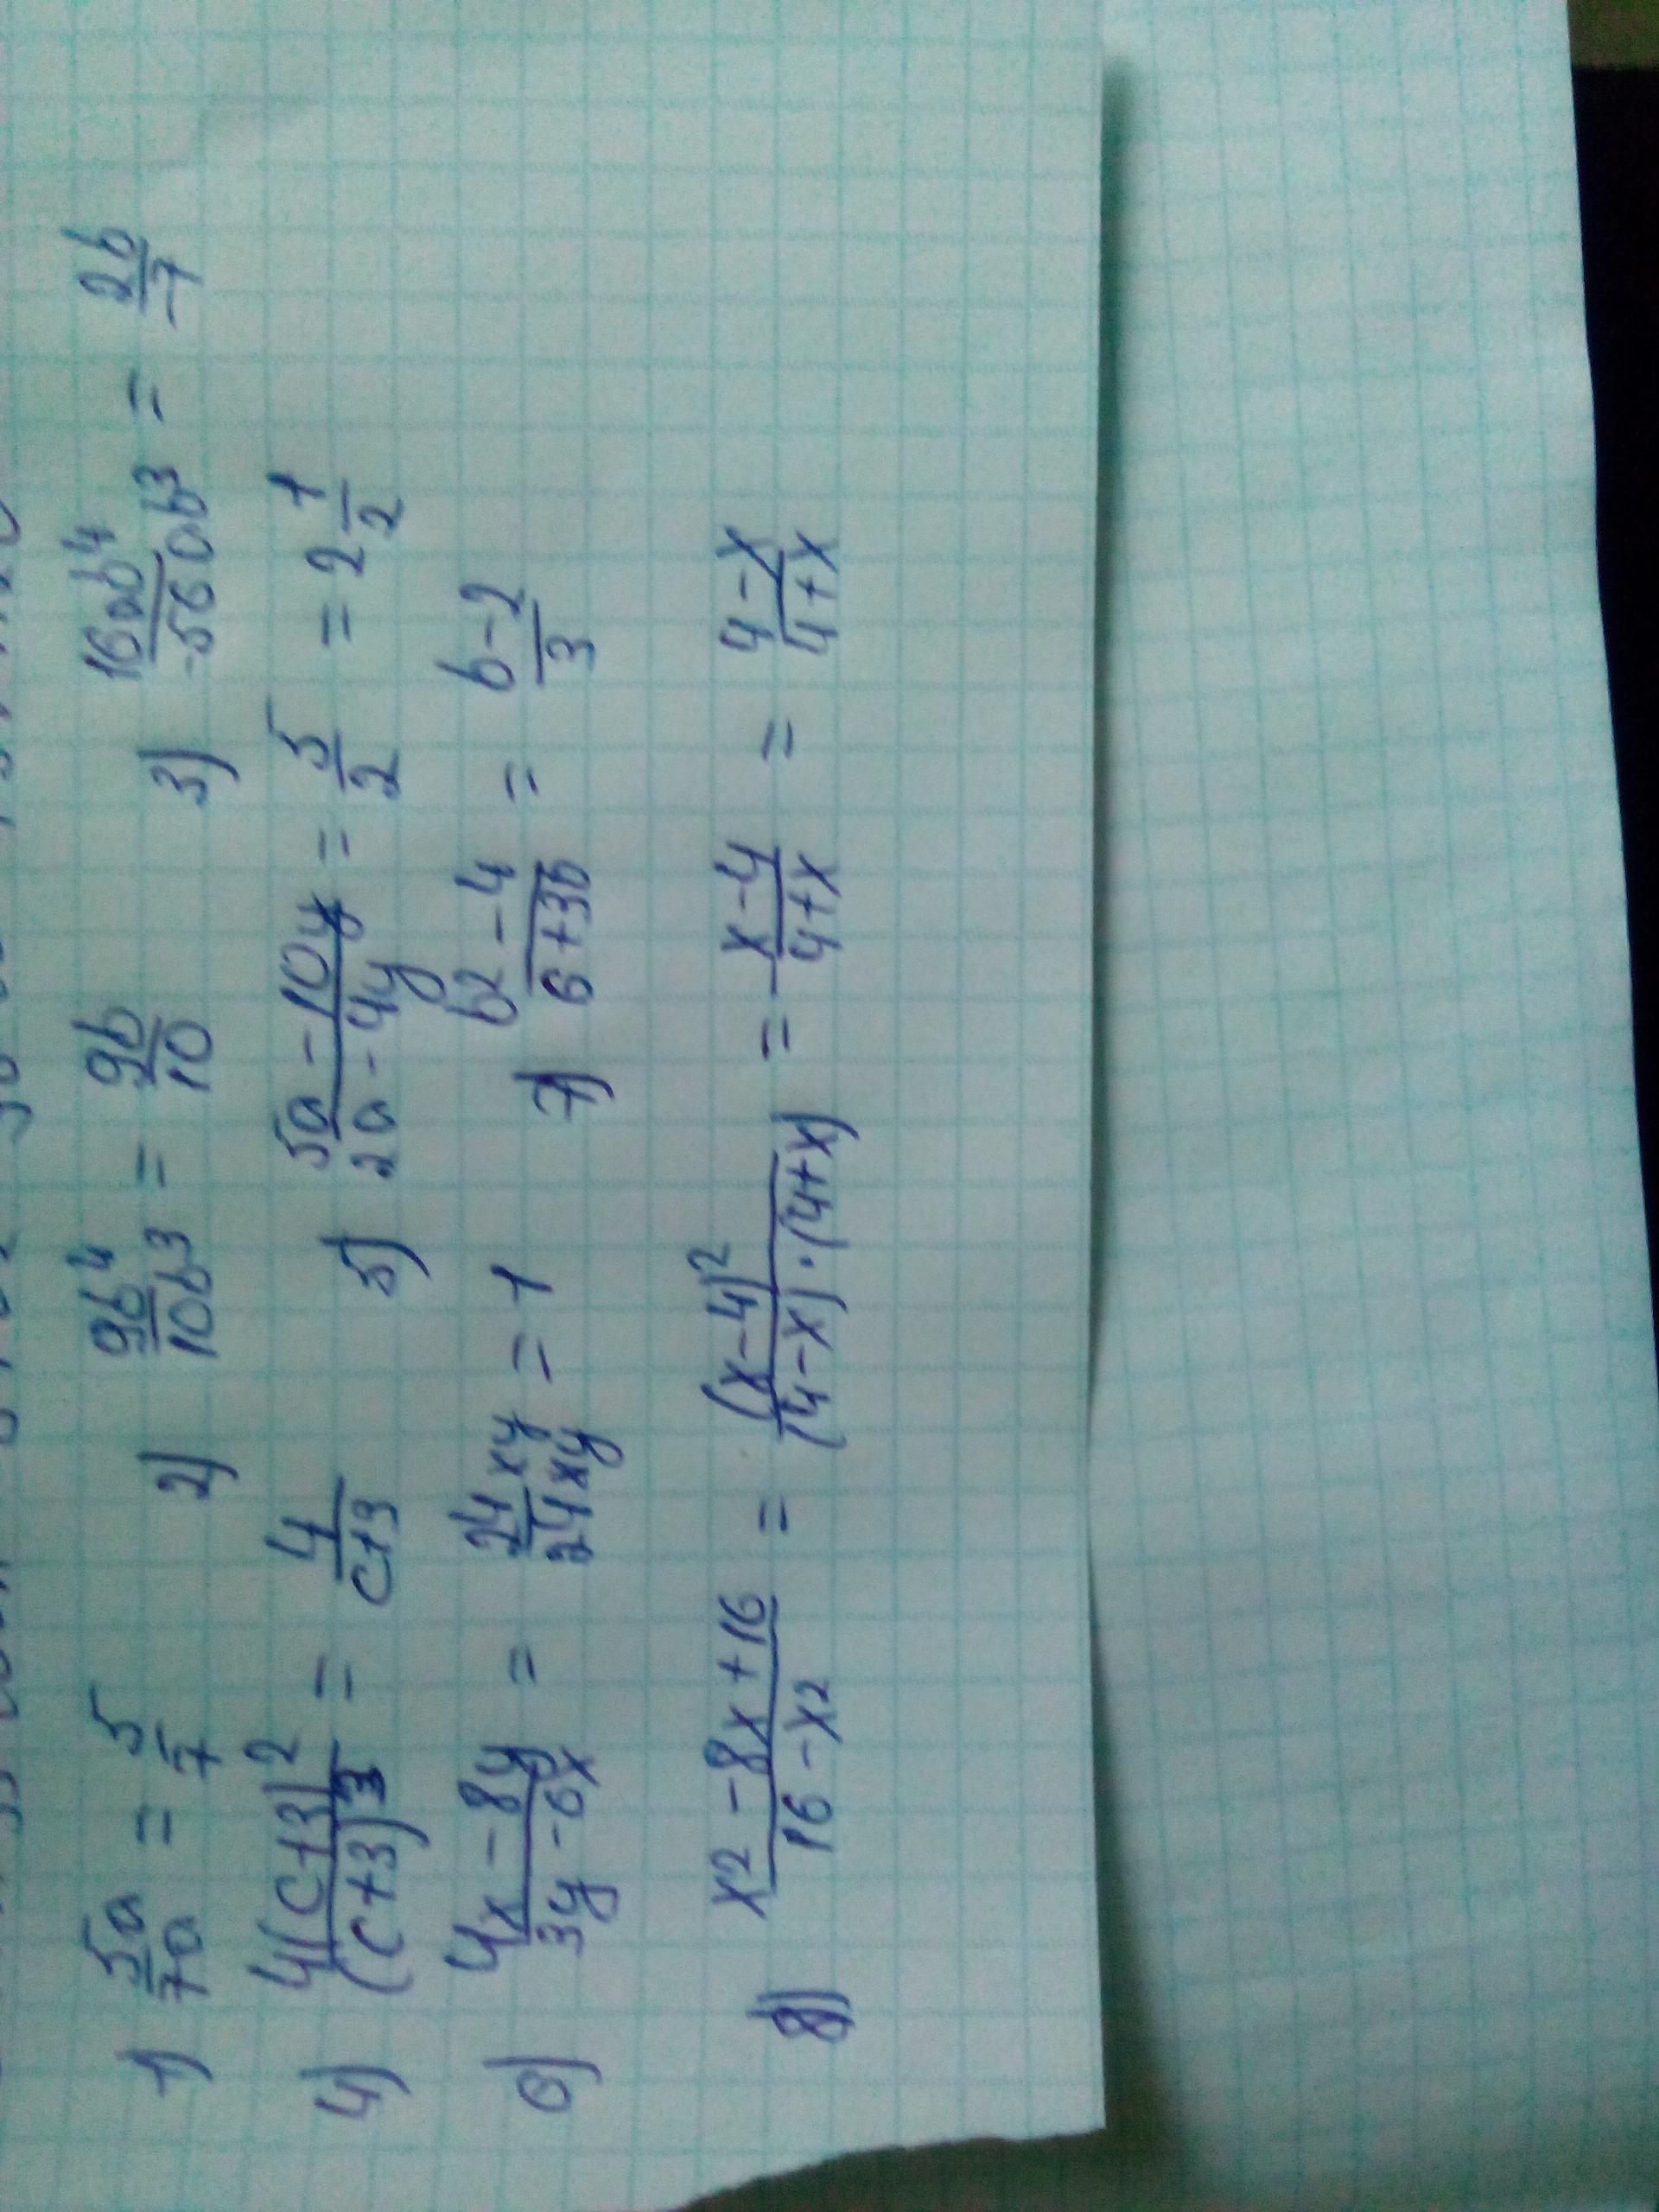 1) 5a/7a = 5/7 2) 9b⁴/10b³ = 9b/10 3) 16ab⁴/-56ab³ = 2b/-7
4) 4(c+3)²/(c+3)³ = 4/c+3 5) 5a-10y/2a-4y = 5/2 = 2 1/2
6) 4x-8y/3y-6x = 24xy/24xy = 1 7) b2-4/6+3b = b-2/3
8) x2-8x+16/16-x2 = (x-4)²/(4-x)·(4+x) = -x-4/4+x = 4-x/4+x